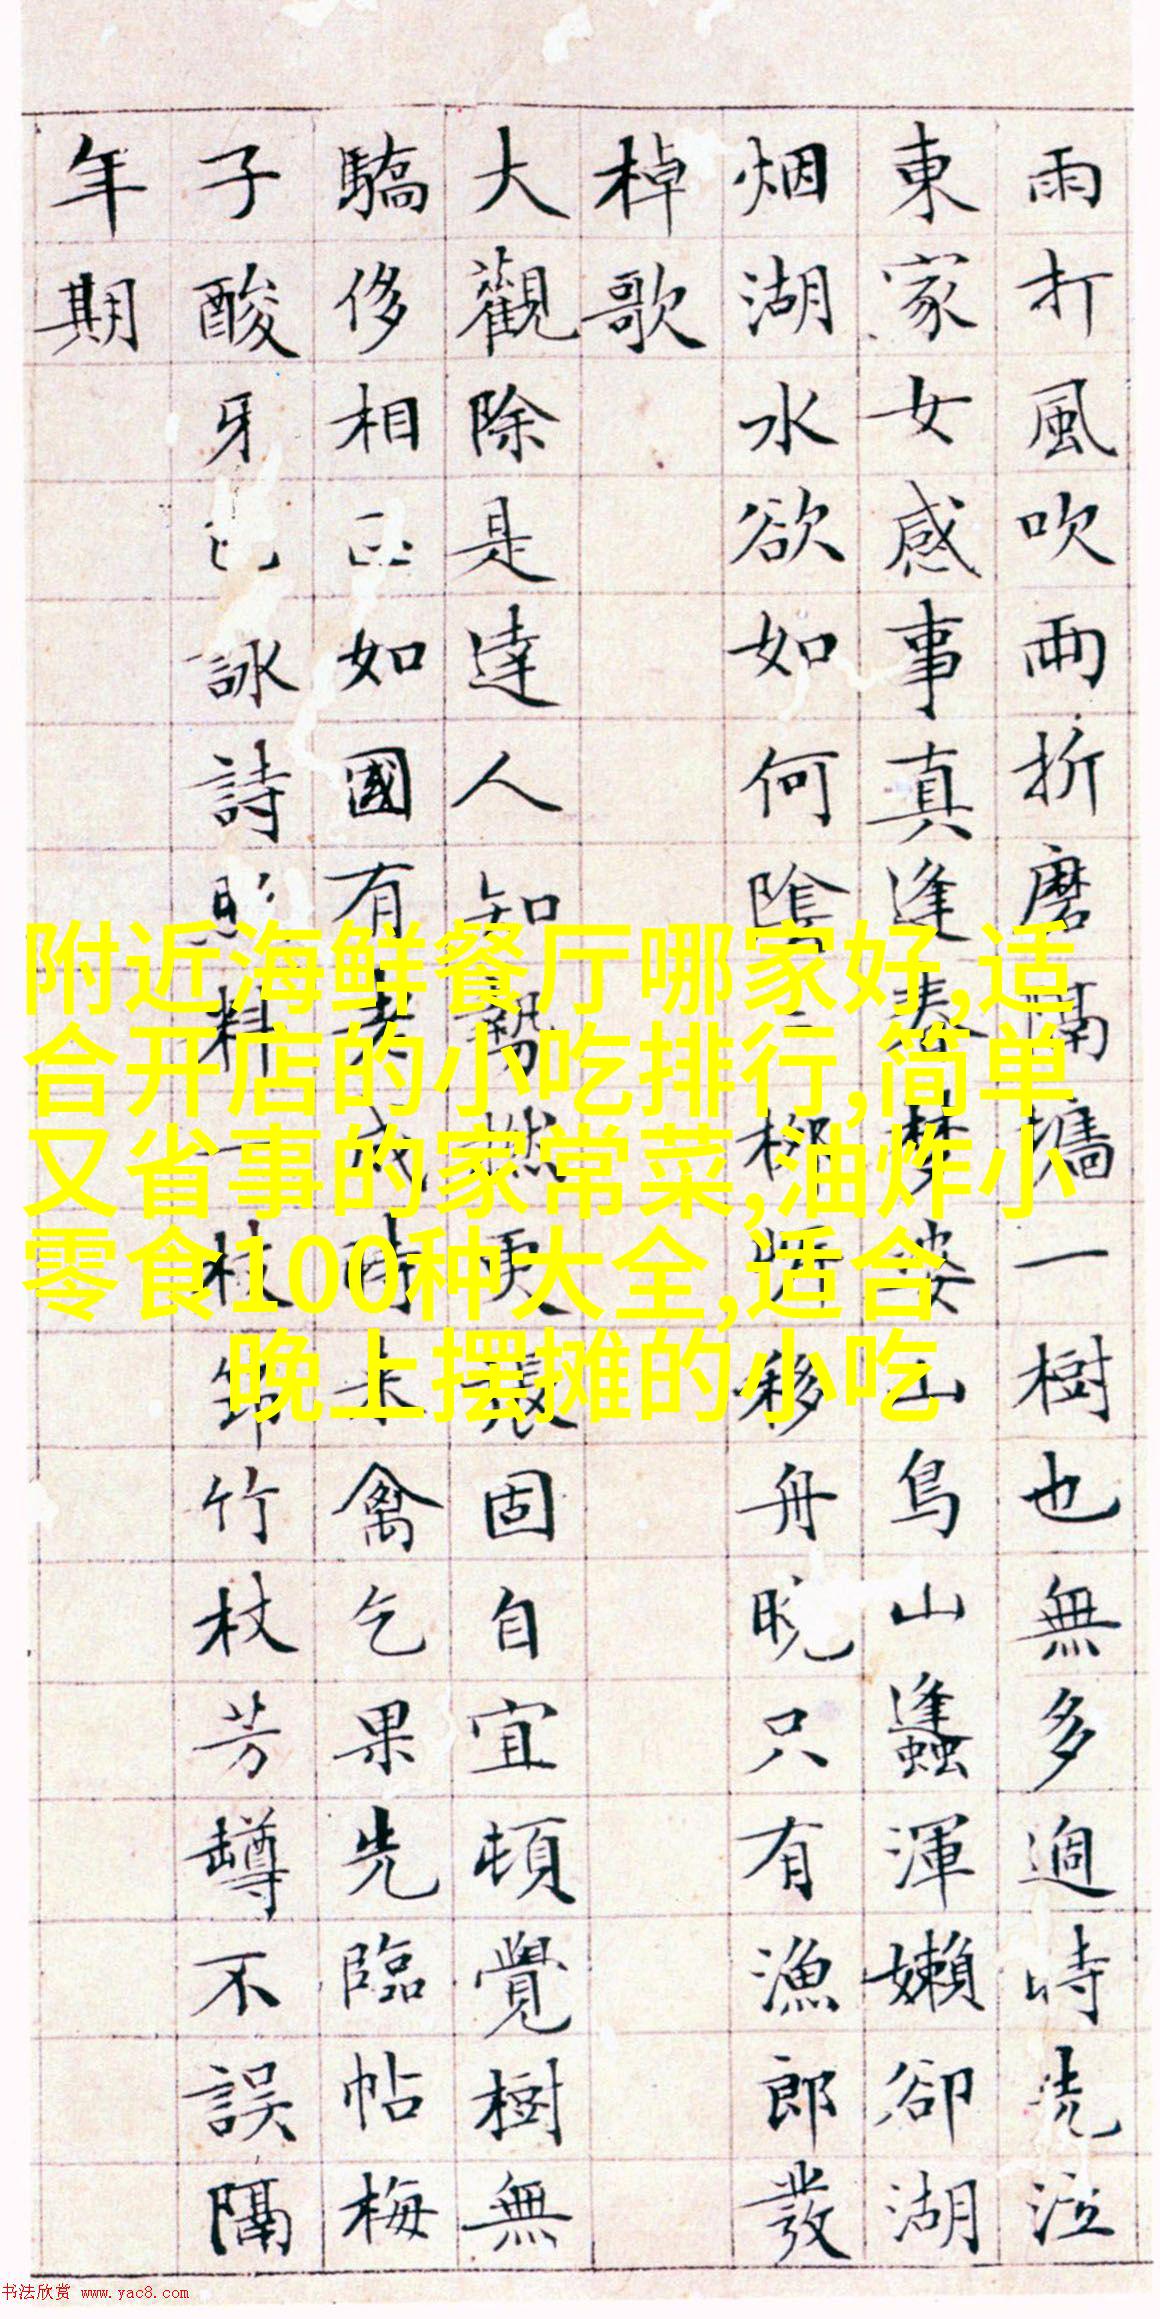 雨打風吹兩折磨隔墻一樹也無多過時洗泣
東家女感事真逢春夢婆山鳥山蠭渾嬾卻湖
烟湖水欲如何陰柳移舟晚只有漁郎發
棹歌
大觀除是達人知勢更張固自宜頓覺樹無
驕侈相如國有老成時未禽乞果先臨帖梅
子酸牙詠詩料一枝筇竹杖芳罇不誤隔
年期
附近海鲜餐厅哪家好,适
合开店的小吃排行,简单
又省事的家常菜,油炸小
零食100种大全,适合
晚上摆摊的小吃
书法欣赏 www.yac8.com